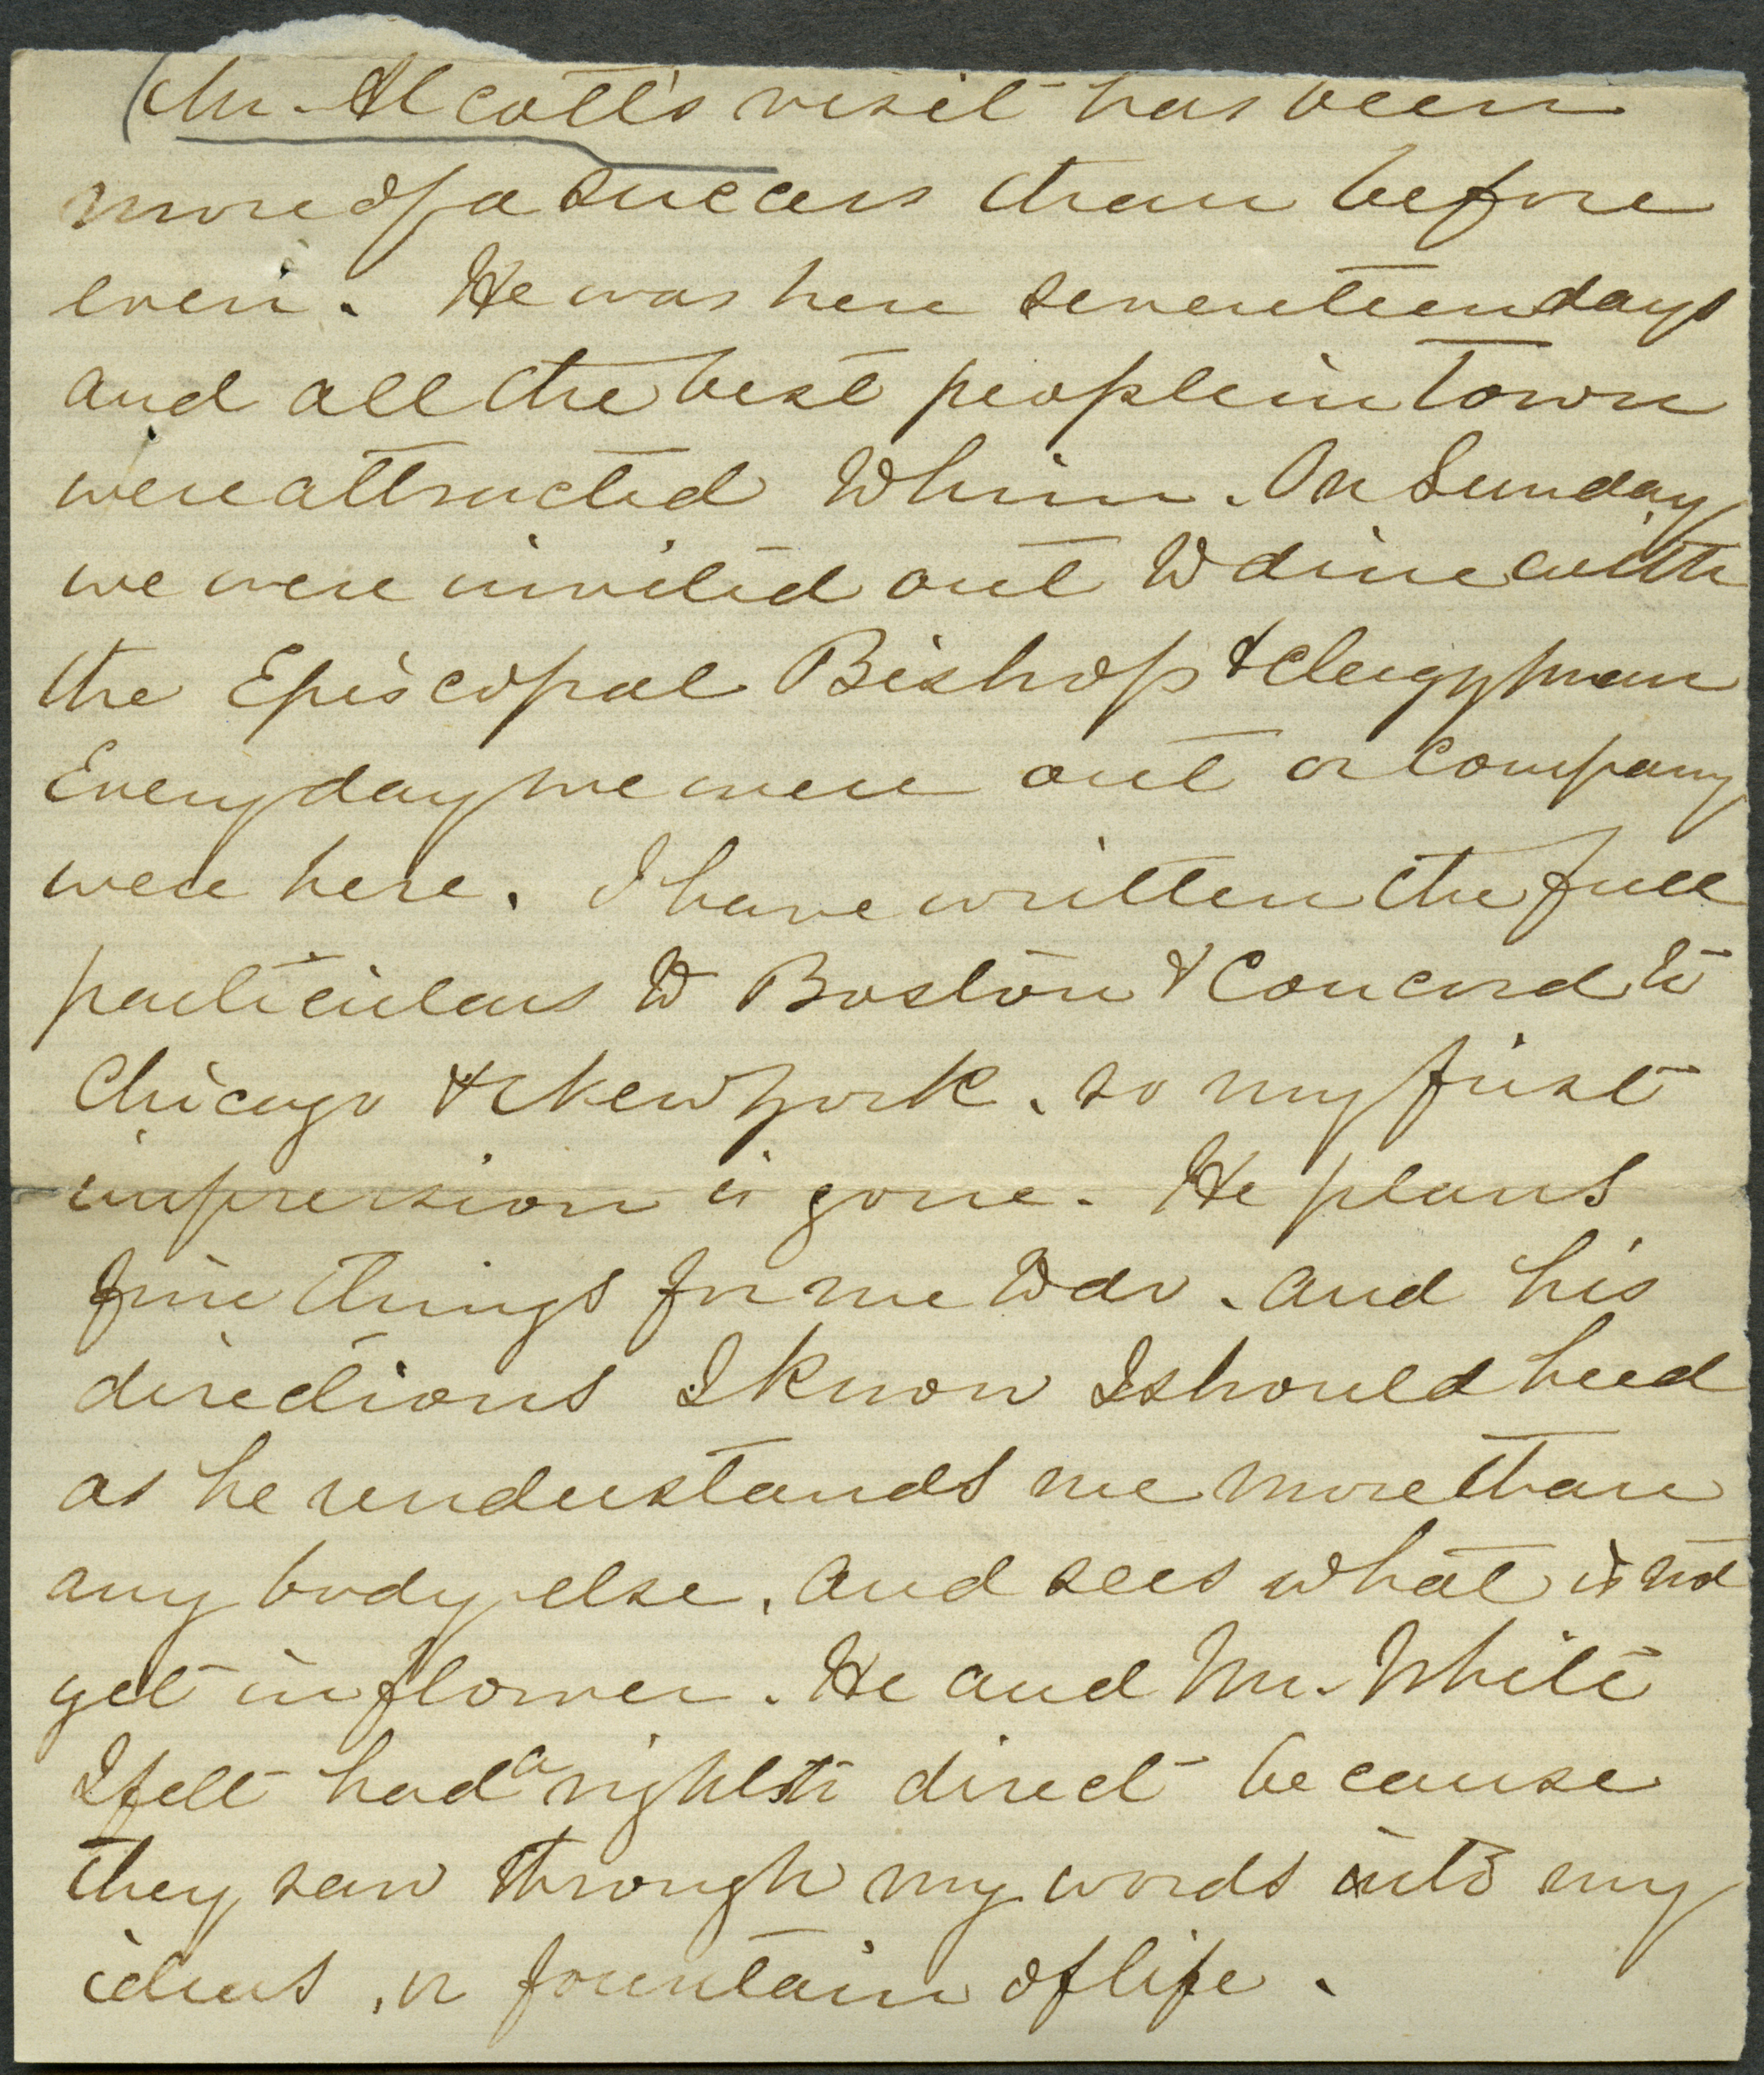 (Mr. Alcott's visit has been
more of a success than before
even. He was here seventeen days
and all the best people in town
were attracted to him. On Sunday
we were invited out to dine with
the Episcopal Bishop & clergyman
Every day we were out or company
were here. I have written the full
particulars to Boston & Concord to
Chicago & New York. so my first
impression is gone. He plans
fine things for me to do. and his
directions I know I should heed
as he understands me more than
any body else. and sees what is not
yet in flower. He and Mr. White
I felt had a right to direct because
they saw through my words into my
ideas, or fountain of life.